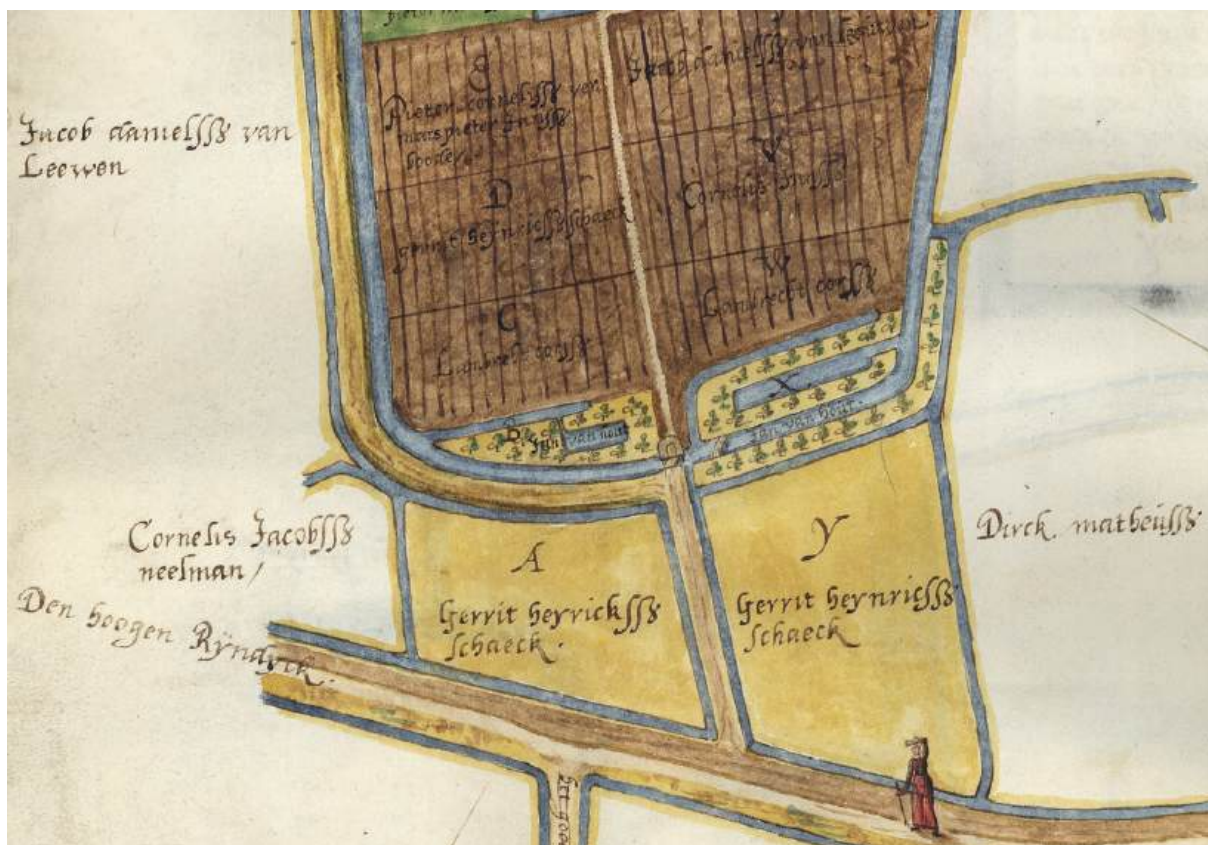 Jacob danielssz van
Leewen
E
Pieter cornelissz ver
D
gerrit heynricssz schaeck
C
Lambrecht corssz
Jacob danielssz van Leeuwen
V
Cornelis
W
Lambrecht corssz
B
Jan van hout
X.
Jan van hout.
Cornelis Jacobssz
neelman /
Den hoogen Rÿndyck.
A
Gerrit heyrickssz
schaeck.
Y
Gerrit heynricssz
schaeck
Dirck. matheussz